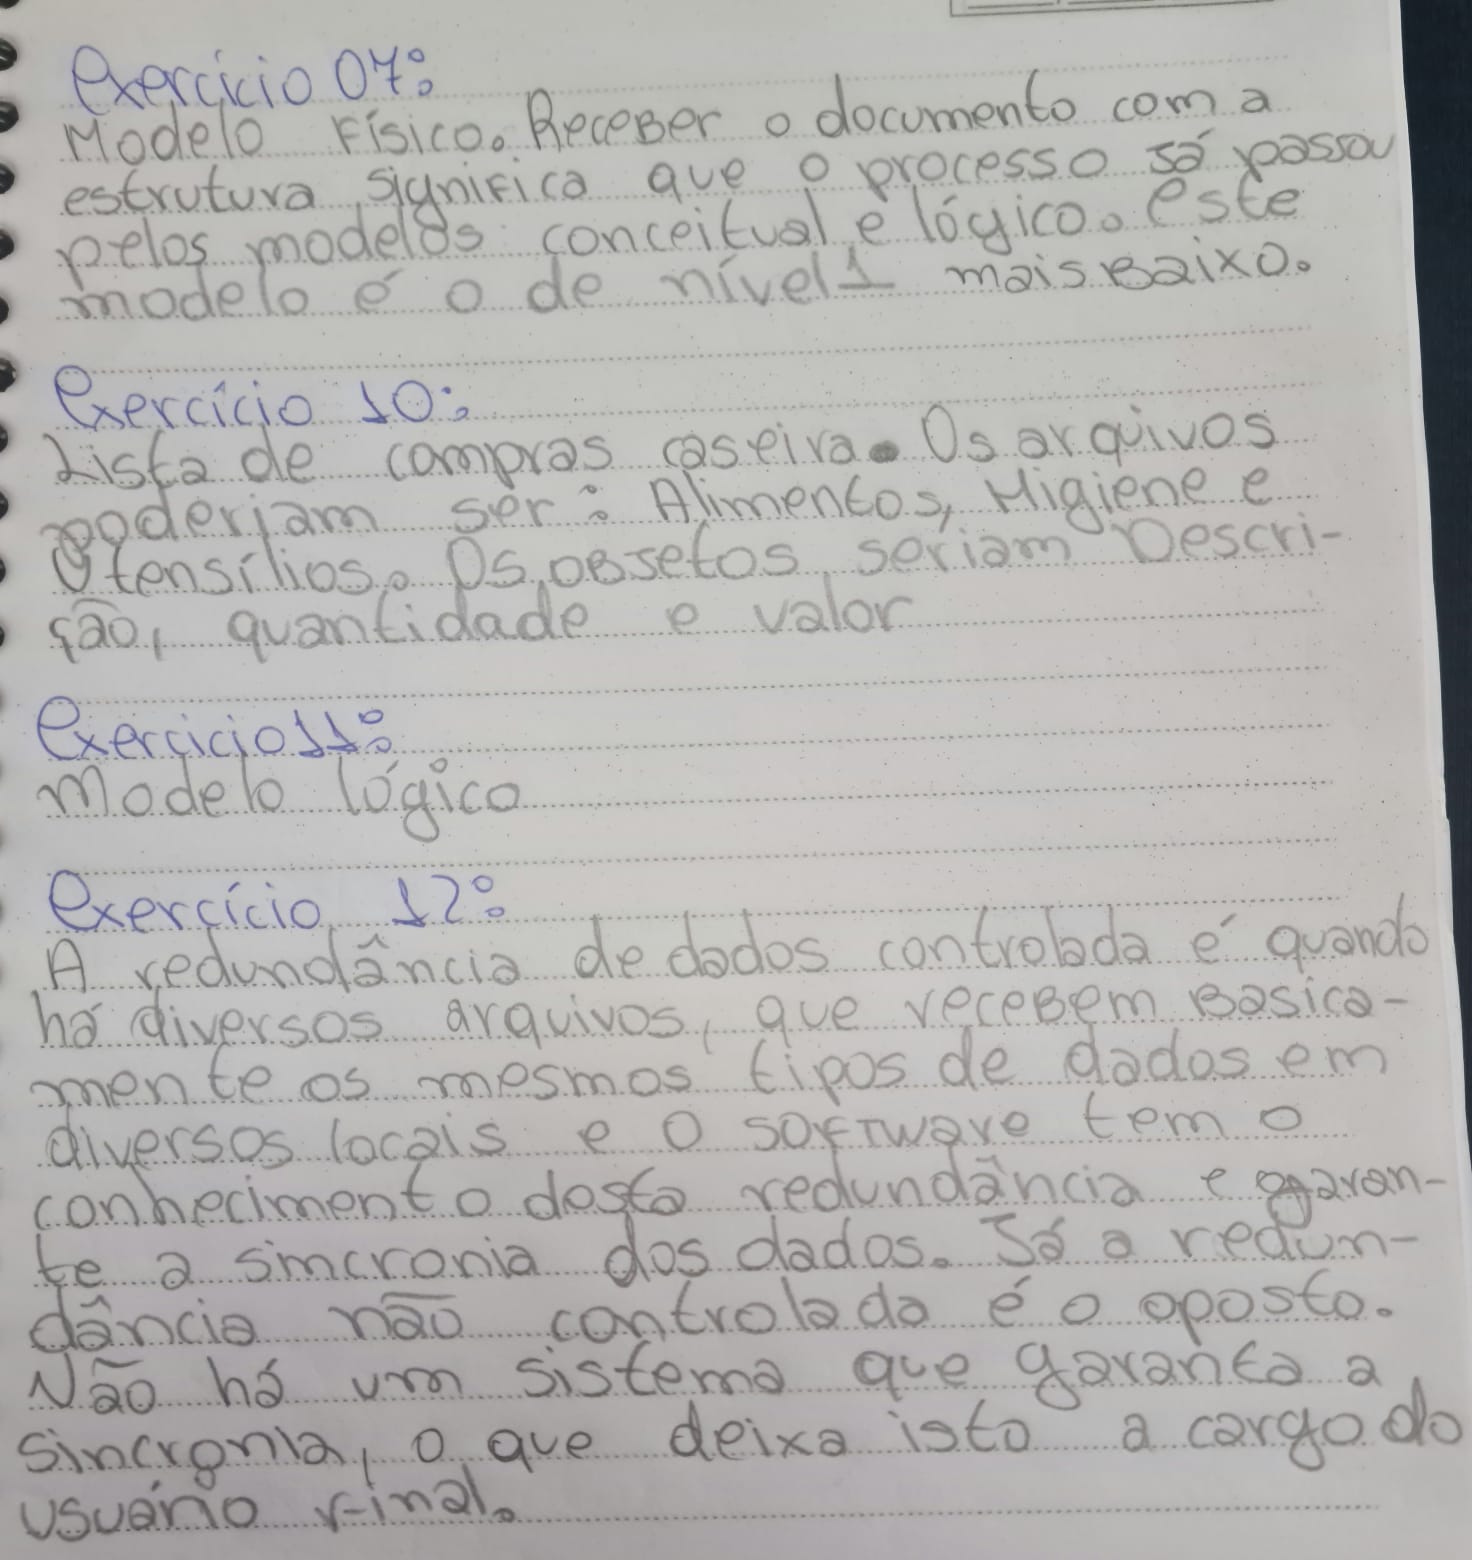 Exercício 07:
Modelo Físico. Receber o documento com a
estrutura, significa que o processo já passou
pelos modelos conceitual e lógico. Este
modelo é o de nível 1 mais baixo.
Exercício 10:
Lista de compras caseira. Os arquivos
poderiam ser: Alimentos, Higiene e
Utensílios. Os objetos, seriam Descri-
ção, quantidade e valor
Exercicio 11:
Modelo lógico
Exercício 12:
A redundância de dados controlada é quando
há diversos arquivos, que recebem basica-
mente os mesmos tipos de dados em
diversos locais e o software tem o
conhecimento desta redundância e garan-
te a sincronia dos dados. Já a redun-
dância não controlada é o oposto.
Não há um sistema que garanta a
sincronia, o que deixa isto a cargo do
usuário final.